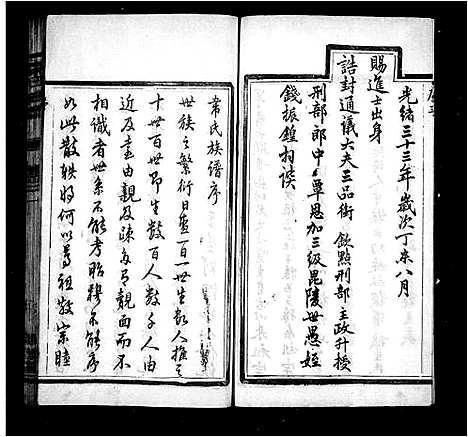 光緒三十三年歲次丁未八月
賜進士出身
誥封通議大夫三品銜 欽點刑部主政升授
刑部郎中 覃恩加三級毘陵世愚姪
錢振鍠拜譔
常氏族譜序
世族之繁衍日盛一日一世生數人推之
十世百世即生數百人數千人由
近及遠由親及疎有覿面而不
相識者世系不能考昭穆不能序
如此散軼將何以尊祖敬宗睦